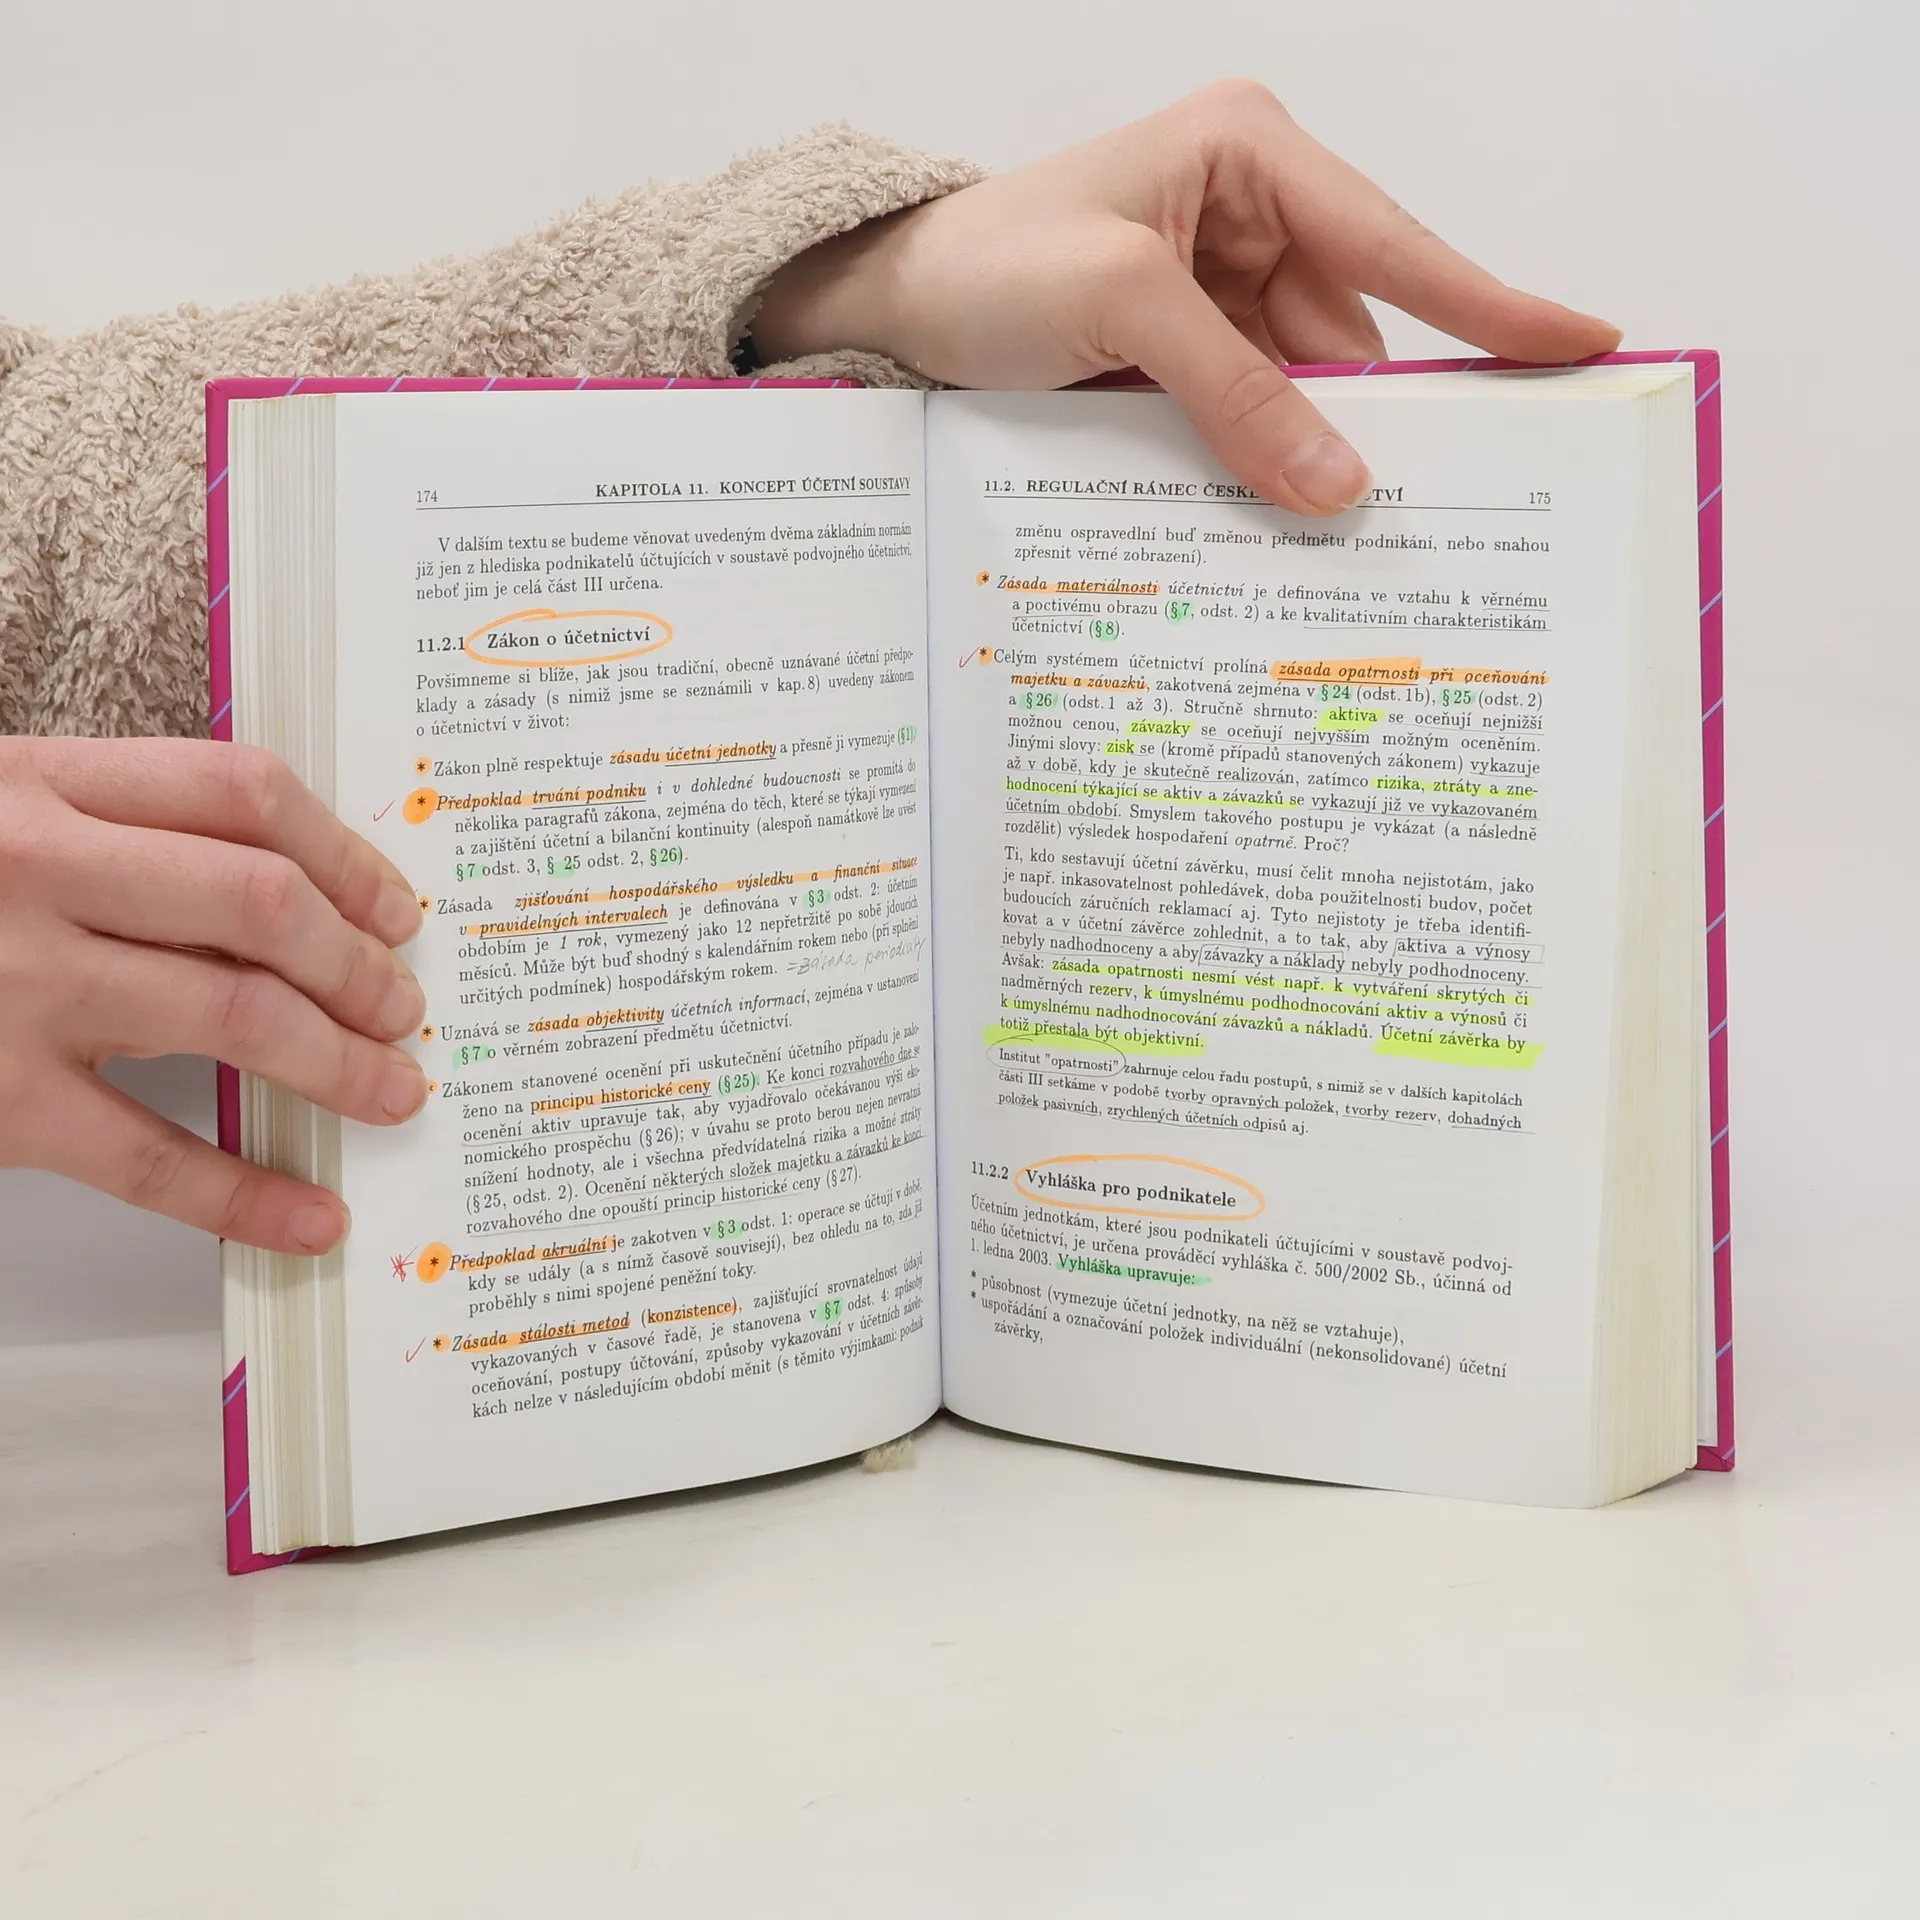 174
KAPITOLA 11. KONCEPT ÚČETNÍ SOUSTAVY
V dalším textu se budeme věnovat uvedeným dvěma základním normám
již jen z hlediska podnikatelů účtujících v soustavě podvojného účetnictví,
neboť jim je celá část III určena.
11.2.1 Zákon o účetnictví
Povšimneme si blíže, jak jsou tradiční, obecně uznávané účetní předpo-
klady a zásady (s nimiž jsme se seznámili v kap. 8) uvedeny zákonem
o účetnictví v život:
* Zákon plně respektuje zásadu účetní jednotky a přesně ji vymezuje (§1).
* Předpoklad trvání podniku i v dohledné budoucnosti se promítá do
několika paragrafů zákona, zejména do těch, které se týkají vymezení
a zajištění účetní a bilanční kontinuity (alespoň namátkově lze uvést
§ 7 odst. 3, § 25 odst. 2, § 26).
* Zásada zjišťování hospodářského výsledku a finanční situace
v pravidelných intervalech je definována v §3 odst. 2: účetním
obdobím je 1 rok, vymezený jako 12 nepřetržitě po sobě jdoucích
měsíců. Může být buď shodný s kalendářním rokem nebo (při splnění
určitých podmínek) hospodářským rokem. = zásada periodicity
* Uznává se zásada objektivity účetních informací, zejména v ustanovení
§ 7 o věrném zobrazení předmětu účetnictví.
Zákonem stanovené ocenění při uskutečnění účetního případu je zalo-
ženo na principu historické ceny (§ 25). Ke konci rozvahového dne se
ocenění aktiv upravuje tak, aby vyjadřovalo očekávanou výši eko-
nomického prospěchu (§ 26); v úvahu se proto berou nejen nevratná
snížení hodnoty, ale i všechna předvídatelná rizika a možné ztráty
(§ 25, odst. 2). Ocenění některých složek majetku a závazků ke konci
rozvahového dne opouští princip historické ceny (§ 27).
* Předpoklad akruální je zakotven v § 3 odst. 1: operace se účtují v době,
kdy se udály (a s nímž časově souvisejí), bez ohledu na to, zda již
proběhly s nimi spojené peněžní toky.
* Zásada stálosti metod (konzistence), zajišťující srovnatelnost údajů
vykazovaných v časové řadě, je stanovena v §7 odst. 4: způsoby
oceňování, postupy účtování, způsoby vykazování v účetních závěr-
kách nelze v následujícím období měnit (s těmito výjimkami: podnik
11.2. REGULAČNÍ RÁMEC ČESK TVÍ
175
změnu ospravedlní buď změnou předmětu podnikání, nebo snahou
zpřesnit věrné zobrazení).
* Zásada materiálnosti účetnictví je definována ve vztahu k věrnému
a poctivému obrazu (§ 7, odst. 2) a ke kvalitativním charakteristikám
účetnictví (§ 8).
* Celým systémem účetnictví prolíná zásada opatrnosti při oceňování
majetku a závazků, zakotvená zejména v § 24 (odst. 1b), § 25 (odst. 2)
a § 26 (odst. 1 až 3). Stručně shrnuto: aktiva se oceňují nejnižší
možnou cenou, závazky se oceňují nejvyšším možným oceněním.
Jinými slovy: zisk se (kromě případů stanovených zákonem) vykazuje
až v době, kdy je skutečně realizován, zatímco rizika, ztráty a zne-
hodnocení týkající se aktiv a závazků se vykazují již ve vykazovaném
účetním období. Smyslem takového postupu je vykázat (a následně
rozdělit) výsledek hospodaření opatrně. Proč?
Ti, kdo sestavují účetní závěrku, musí čelit mnoha nejistotám, jako
je např. inkasovatelnost pohledávek, doba použitelnosti budov, počet
budoucích záručních reklamací aj. Tyto nejistoty je třeba identifi-
kovat a v účetní závěrce zohlednit, a to tak, aby aktiva a výnosy
nebyly nadhodnoceny a aby závazky a náklady nebyly podhodnoceny.
Avšak: zásada opatrnosti nesmí vést např. k vytváření skrytých či
nadměrných rezerv, k úmyslnému podhodnocování aktiv a výnosů či
k úmyslnému nadhodnocování závazků a nákladů. Účetní závěrka by
totiž přestala být objektivní.
Institut "opatrnosti" zahrnuje celou řadu postupů, s nimiž se v dalších kapitolách
části III setkáme v podobě tvorby opravných položek, tvorby rezerv, dohadných
položek pasivních, zrychlených účetních odpisů aj.
11.2.2 Vyhláška pro podnikatele
Účetním jednotkám, které jsou podnikateli účtujícími v soustavě podvoj-
ného účetnictví, je určena prováděcí vyhláška č. 500/2002 Sb., účinná od
1. ledna 2003. Vyhláška upravuje:
* působnost (vymezuje účetní jednotky, na něž se vztahuje),
* uspořádání a označování položek individuální (nekonsolidované) účetní
závěrky,